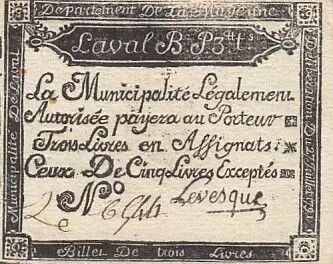 Departement De La Mayenne
Laval B. P. 3tt s
La Municipalité Légalement
Autorisée payera au Porteur
Trois Livres en Assignats
Ceux De Cinq Livres Exceptés
No 6944 Levesque
2e
Municipalité De Laval
Billet De trois Livres